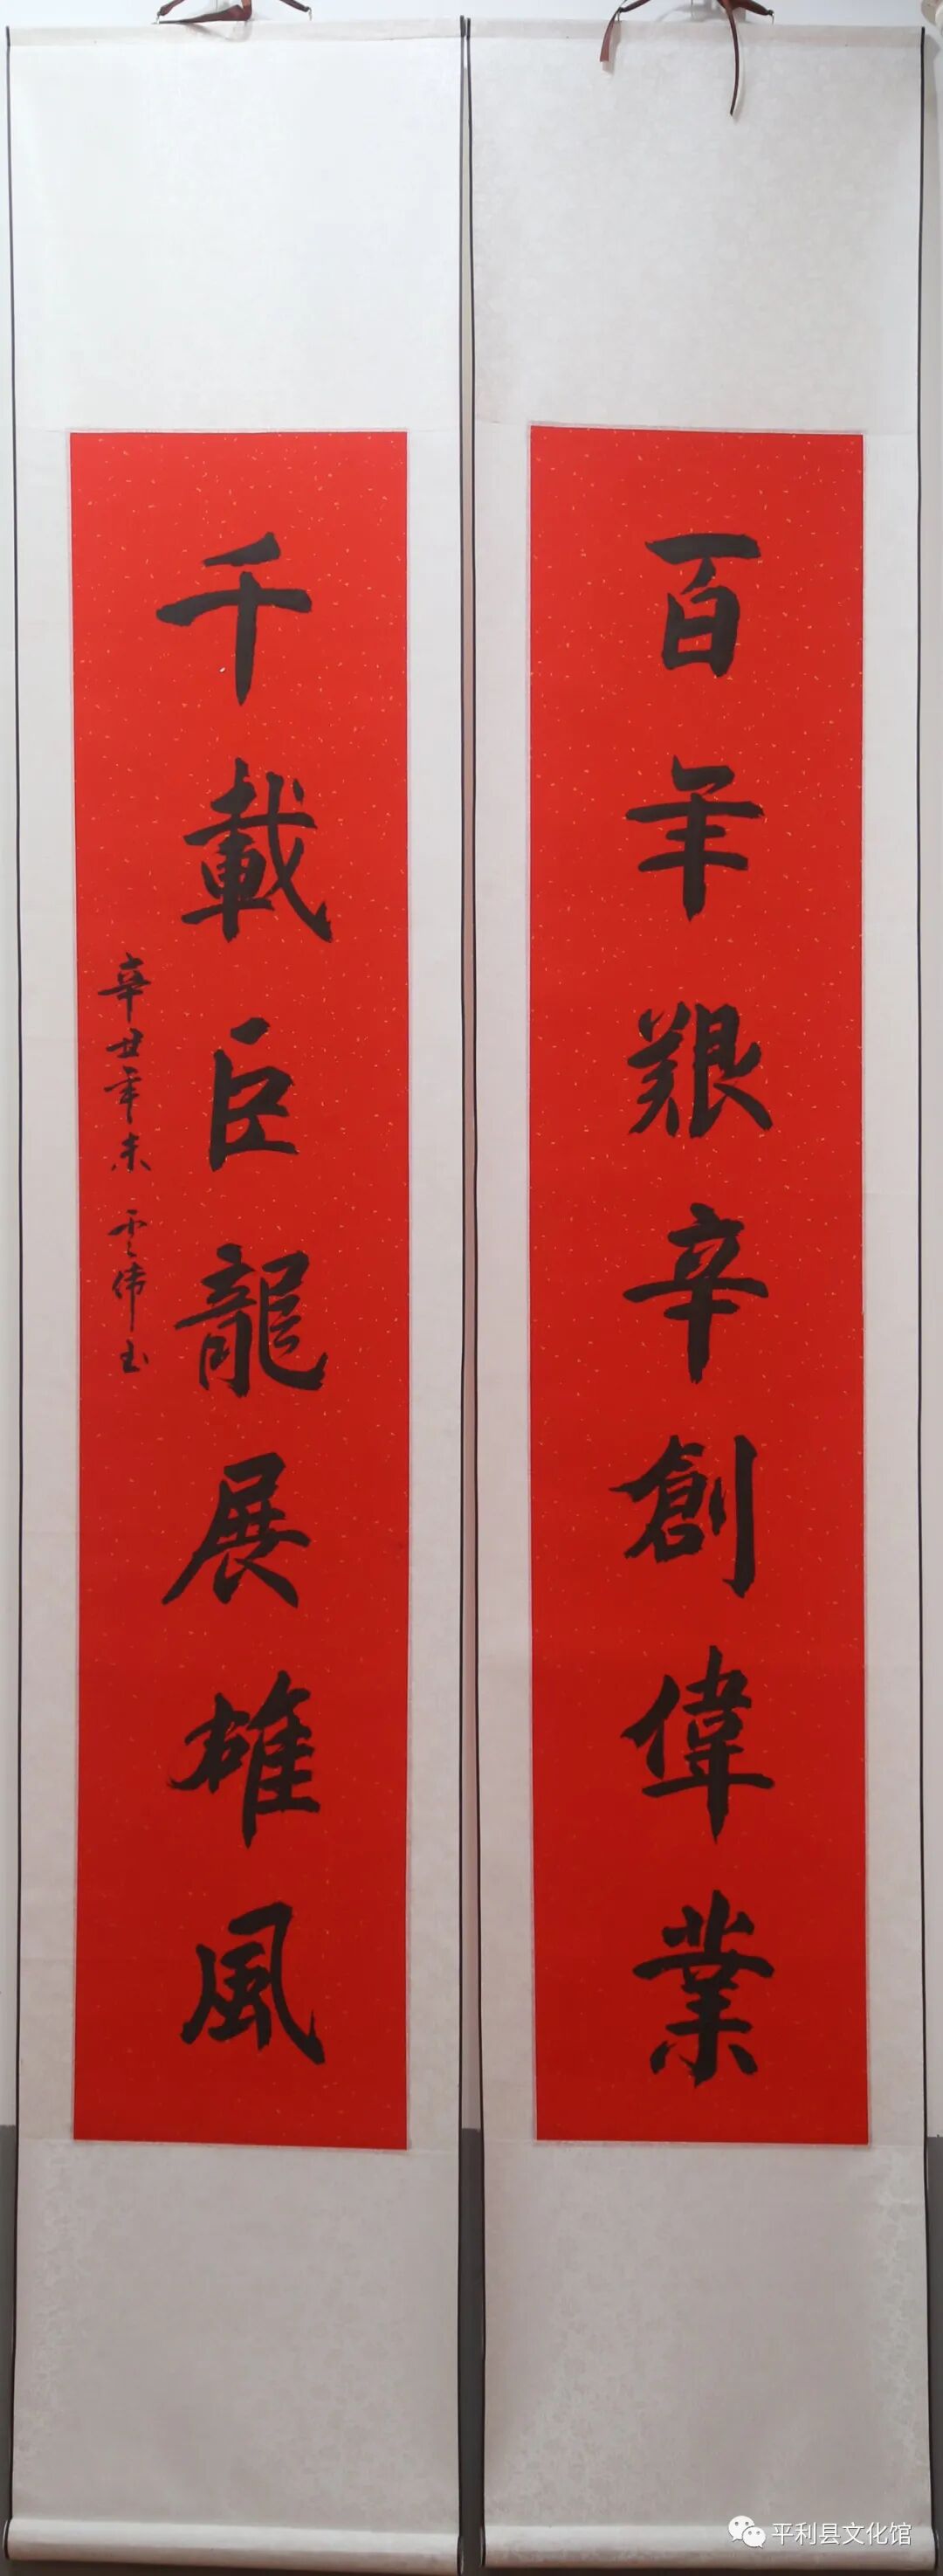 百年艱辛創偉業
千載巨龍展雄風
辛丑年末 云伟
平利县文化馆